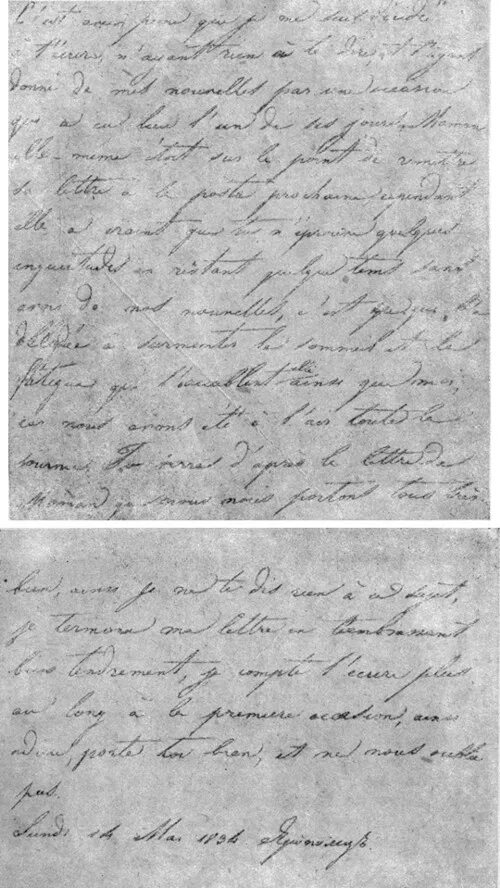 C'est avec peine que je me suis décidé
à t'écrire, n'ayant rien à te dire, et t'ayant
donné de mes nouvelles par une occasion
qui a eu lieu l'un de ces jours. Maman
elle même étoit sur le point de remettre
sa lettre à la poste prochaine cependant
elle a craint que tu n'éprouve quelques
inquiétudes en restant quelque tems sans
avoir de nos nouvelles, c'est ce qui l'a
décidée à surmonter le sommeil et la
fatigue qui l'accablent elle ainsi que moi,
car nous avons été à l'air toute la
journée. Tu verras d'après la lettre de
Maman que nous nous portons tous très
bien, ainsi je ne te dis rien à ce sujet,
je termine ma lettre en t'embrassant
bien tendrement, je compte t'écrire plus
au long à la première occasion, ainsi
adieu, porte toi bien, et ne nous oublie
pas.
Lundi 14 Mai 1834